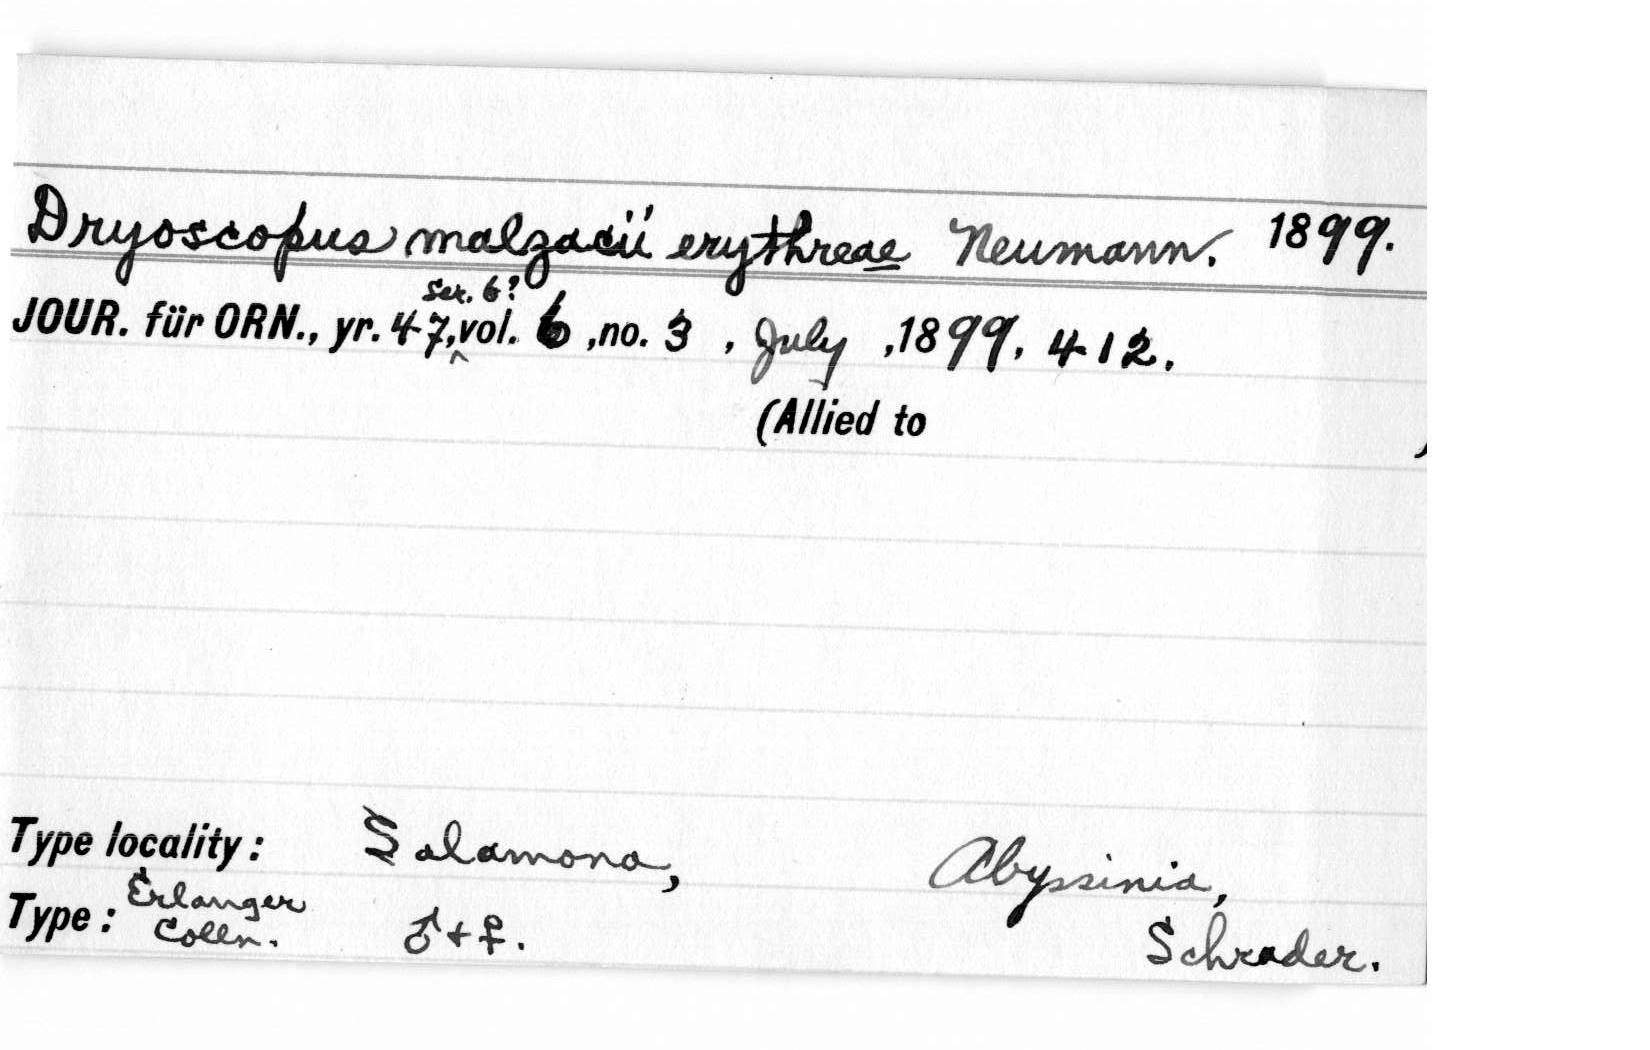 Dryoscopus malzacii erythreae Neumann. 1899.
Ser. 6?
JOUR. für ORN., yr. 47, ^ vol. 6, no. 3, July, 1899, 412.
(Allied to )
Type locality: Salamona, Abyssinia,
Type: Erlanger Colln. ♂ + ♀. Schrader.